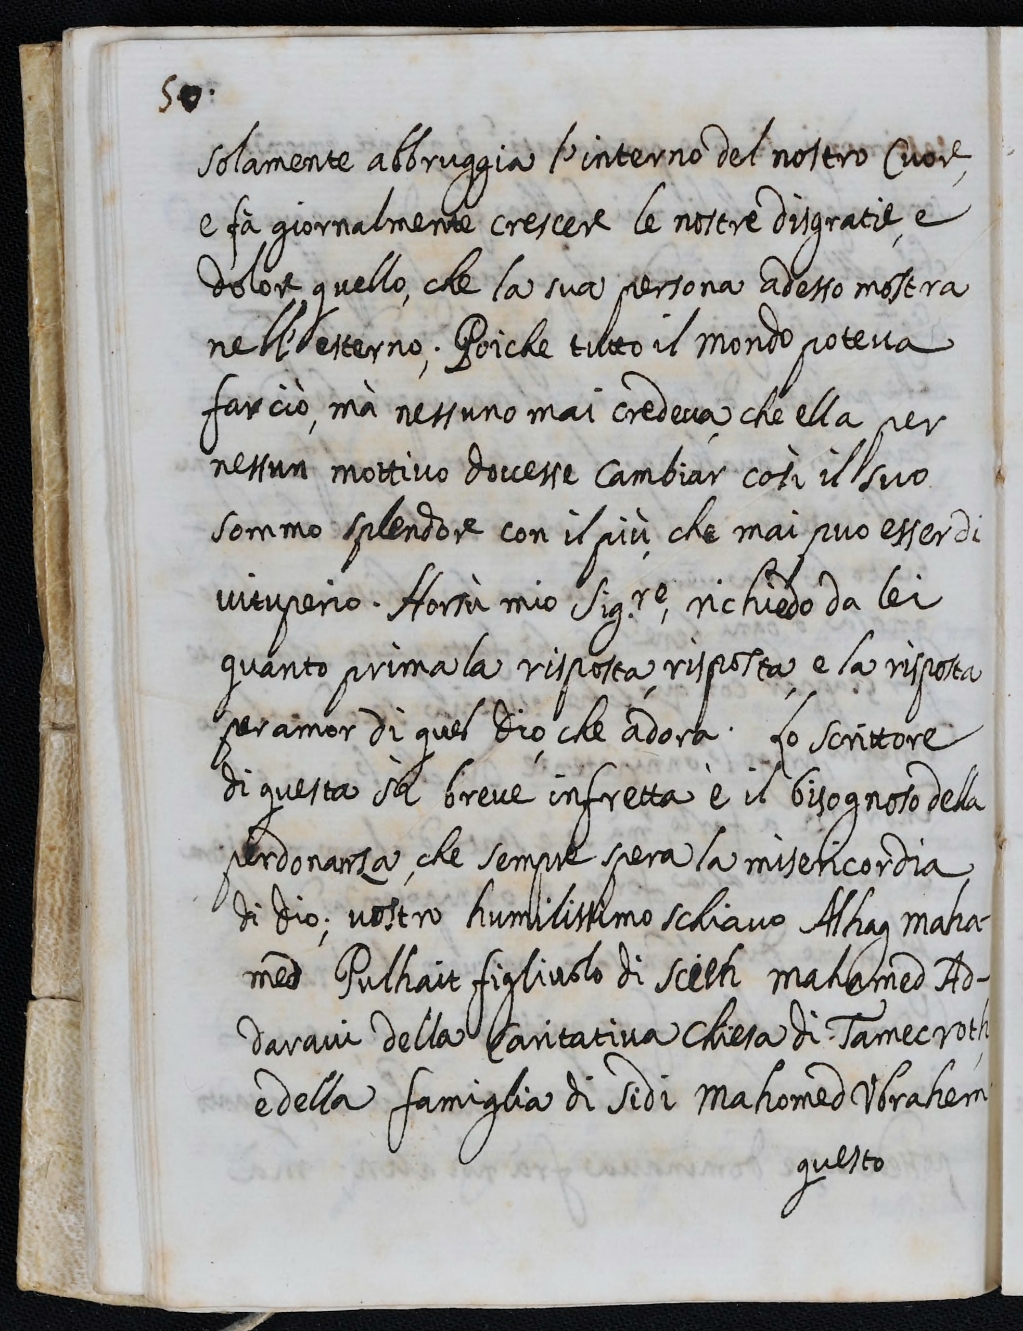 50.
solamente abbruggia l'interno del nostro Cuore,
e fà giornalmente crescere le nostre disgratie, e
dolore quello, che la sua persona adesso mostra
nell'esterno; Poiche tutto il mondo poteua
far ciò, mà nessuno mai credeua, che ella per
nessun mottiuo douesse cambiar così il suo
sommo splendore con il più, che mai puo esser di
uituperio. Horsù mio Sig.re, richiedo da lei
quanto prima la risposta, risposta, e la risposta
per amor di quel Dio, che adora. Lo scrittore
di questa sì breue infretta è il bisognoso della
perdonanza, che sempre spera la misericordia
di Dio; uostro humilissimo schiauo Alhag maha-
med Pulhait figliuolo di sceih mahamed Ad-
daraui della Caritatiua Chiesa di Tamecroth
e della famiglia di Sidi Mahomed Vbrahem
questo